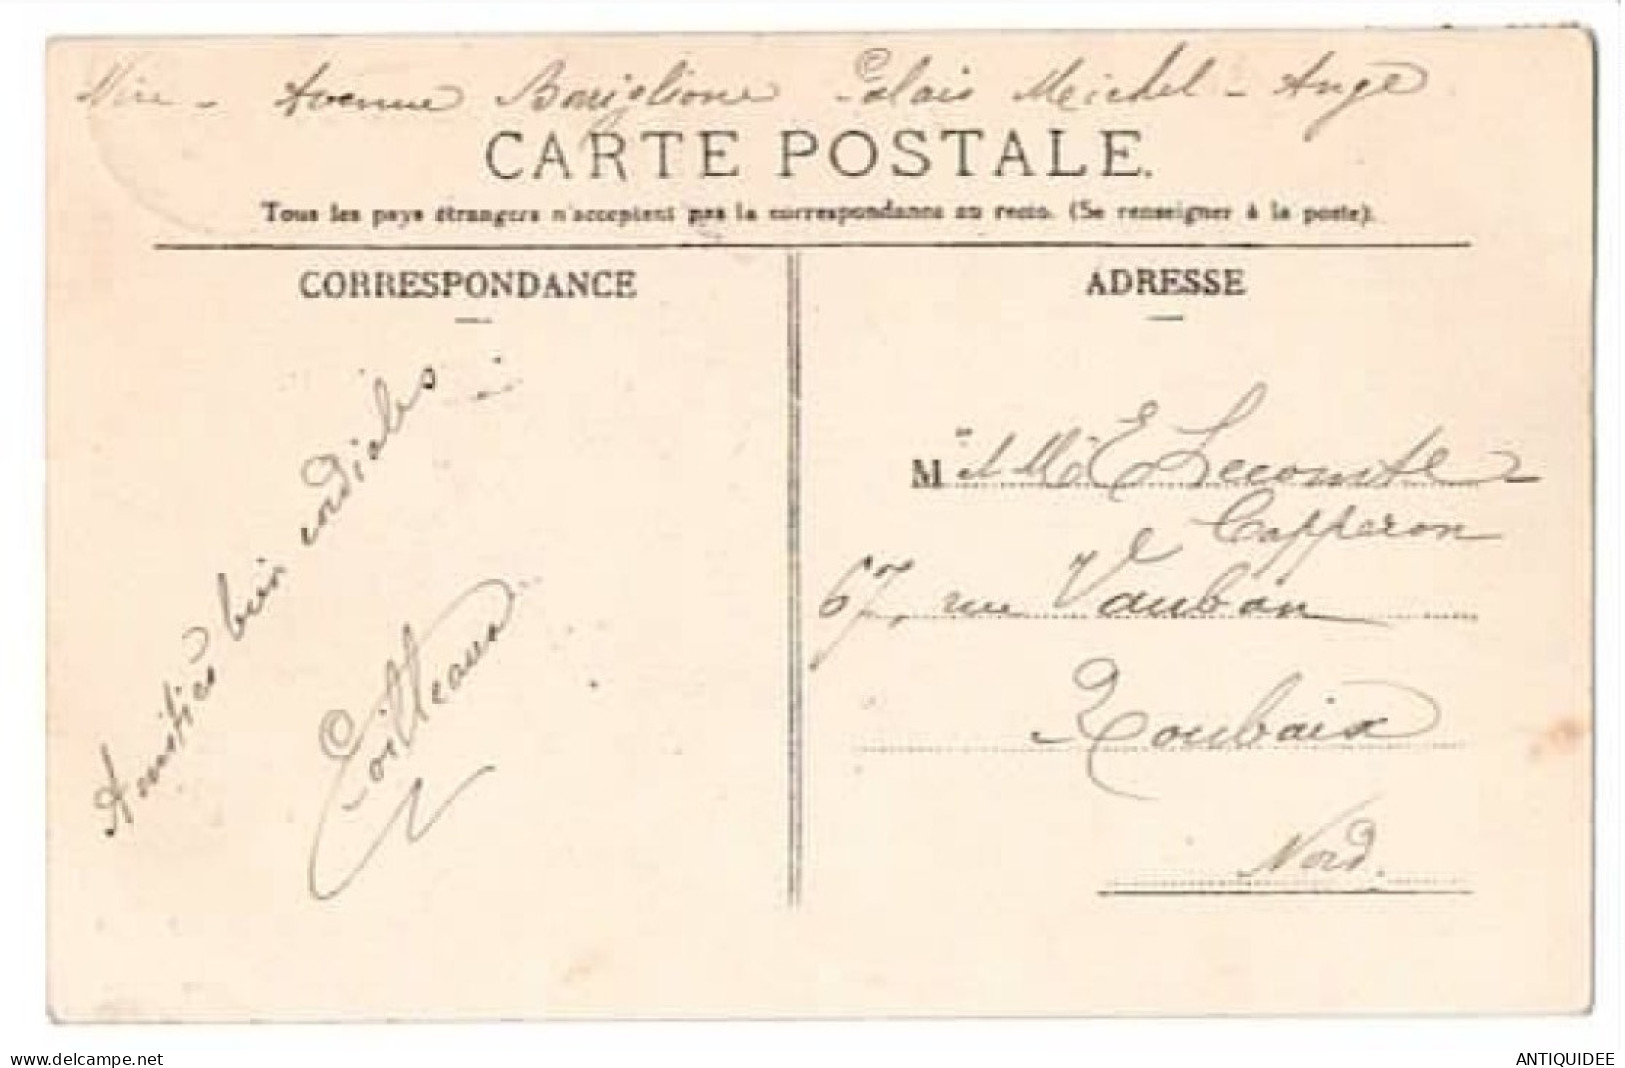 Nice - Avenue Bouiglione Palais Michel-Ange
CARTE POSTALE.
Tous les pays étrangers n'acceptent pas la correspondance au recto. (Se renseigner à la poste).
CORRESPONDANCE
Amitiés bien cordiales
ADRESSE
M et Me E Lecomte
Capperon
67, rue Vauban
Roubaix
Nord.
www.delcampe.net
ANTIQUIDEE